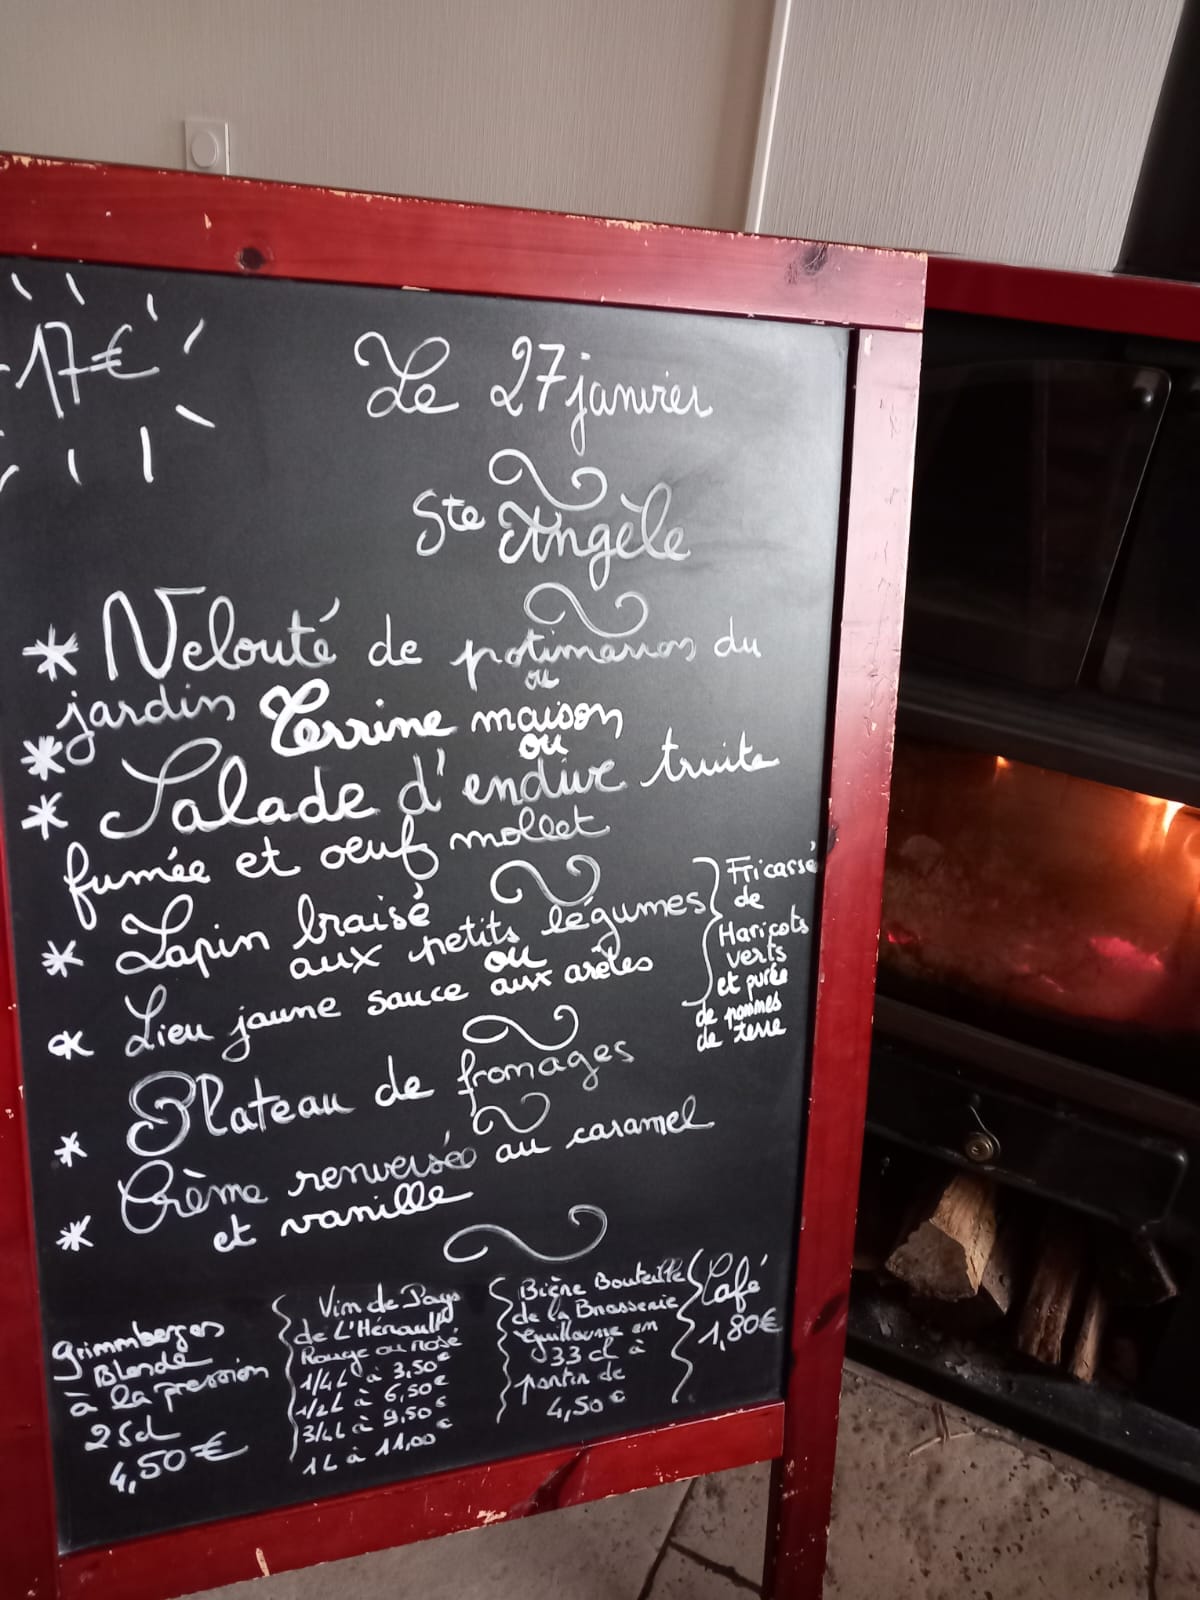 17€
Le 27 janvier
Ste Angèle
* Velouté de potimarron du
ou
jardin Terrine maison
*
ou
* Salade d'endive truite
fumée et oeuf mollet
* Lapin braisé
aux petits légumes
ou
* Lieu jaune sauce aux arêtes
Fricassé
de
Haricots
verts
et purée
de pommes
de terre
* Plateau de fromages
* Crème renversée au caramel
et vanille
Grimmbergen
Blonde
à la pression
25cl
4,50€
Vin de Pays
de L'Hérault
Rouge ou Rosé
1/4L à 3,50€
1/2L à 6,50€
3/4L à 9,50€
1L à 11,00€
Bière Bouteille
de la Brasserie
Guillaume en
33cl à
partir de
4,50€
Café
1,80€